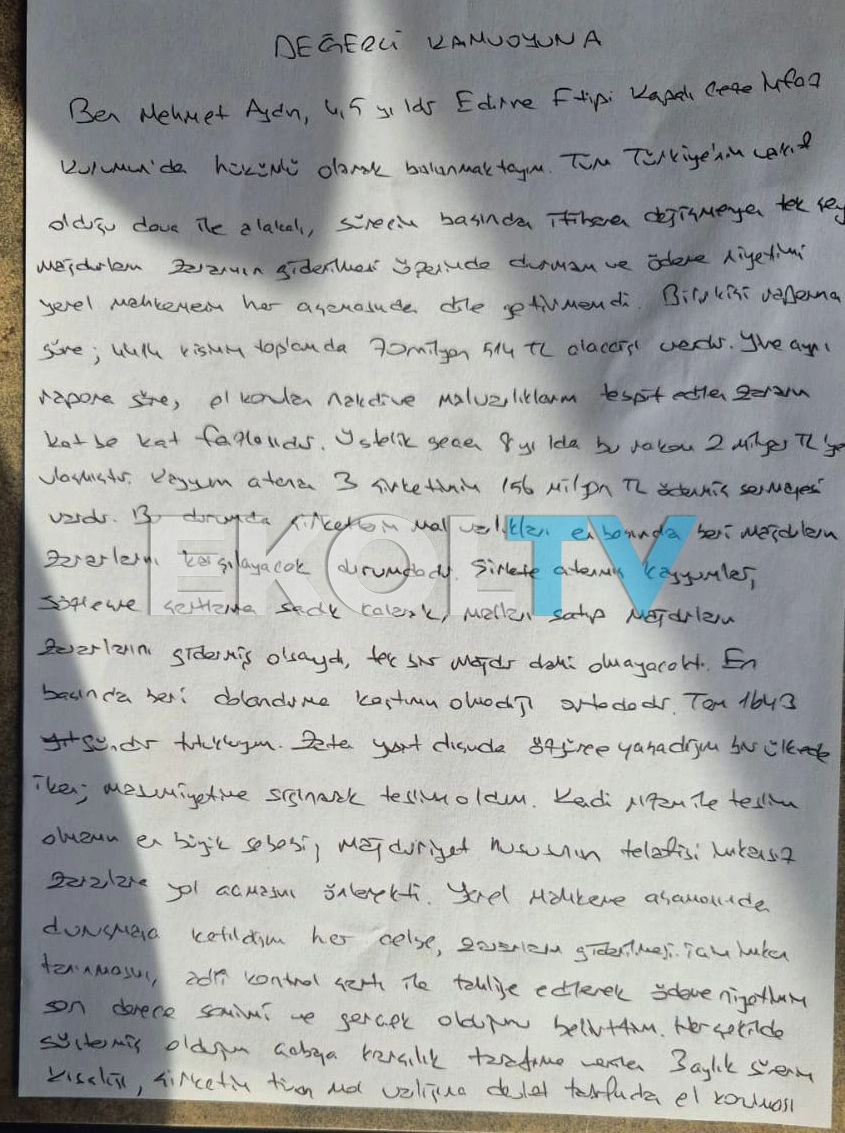 DEĞERLİ KAMUOYUNA
Ben Mehmet Aydın, 4,5 yıldır Edirne F tipi Kapalı Ceza İnfaz
Kurumun'da hükümlü olarak bulunmaktayım. Tüm Türkiye'nin vakıf
olduğu dava ile alakalı, sürecin başından itibaren değişmeyen tek şey
mağdurların zararının giderilmesi üzerinde durmam ve ödeme niyetimi
yerel mahkemenin her aşamasında dile getirmemdi. Bilirkişi raporuna
göre; kişinin toplamda 70 milyon 514 TL alacağı vardır. Yine aynı
rapora göre, el konulan nakdi ve malvarlıklarım tespit edilen zararın
kat be kat fazlasıdır. Üstelik geçen 8 yılda bu rakam 2 milyar TL'ye
ulaşmıştır. Kayyum atanan 3 şirketimin 156 milyon TL ödenmiş sermayesi
vardır. Bu durumda şirketlerin mal varlıkları en başından beri mağdurların
zararlarını karşılayacak durumdadır. Şirkete atanmış kayyumlar,
sözleşme şartlarına sadık kalarak, malları satıp mağdurların
zararlarını gidermiş olsaydı, tek bir mağdur dahi olmayacaktı. En
başından beri dolandırma kastımın olmadığı ortadadır. Tam 1643
gündür tutukluyum. Zaten yurt dışında özgürce yaşadığım bir ülkede
iken; masumiyetime sığınarak teslim oldum. Kendi rızam ile teslim
olmamın en büyük sebebi, mağduriyet hususunun telafisi imkansız
zararlara yol açmasını önlemekti. Yerel mahkeme aşamasında
duruşmaya katıldığım her celse, zararların giderilmesi için imkan
tanınmasını, adli kontrol şartı ile tahliye edilerek ödeme niyetimin
son derece samimi ve gerçek olduğunu belirttim. Her şekilde
göstermiş olduğum çabaya karşılık tarafıma verilen 3 aylık sürenin
kısalığı, şirketin tüm mal varlığına devlet tarafından el konması
EKOLTV